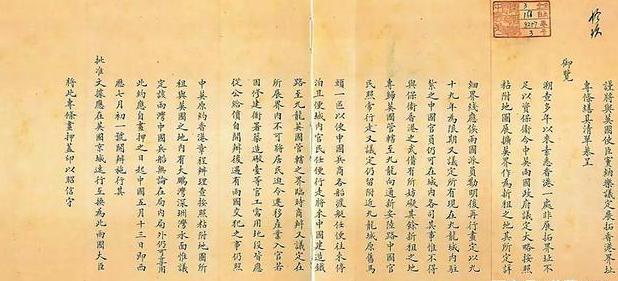 謹將與英國使臣竇納樂議定展拓香港界址
專條繕具清單恭呈
御覽
溯查多年以來素悉香港一處非展拓界址不
足以資保衛今中英兩國政府議定大略按照
粘附地圖展擴英界作為新租之地其所定詳
細界綫應俟兩國派員勘明後再行畫定以九
十九年為限期又議定所有現在九龍城內駐
紮之中國官員仍可在城內各司其事惟不得
與保衛香港之武備有所妨礙其餘新租之地
專歸英國管轄至九龍向通新安陸路中國官
民照常行走又議定仍留附近九龍城原舊馬
頭一區以便中國兵商各船渡艇任便往來停
泊且便城內官民任便行走將來中國建造鐵
路至九龍英國管轄之界臨時商辦又議定在
所展界內不可將居民迫令遷移產業入官若
因修建衙署築造礮臺等官工需用地段皆應
從公給價自開辦後遇有兩國交犯之事仍照
中英原約香港章程辦理查按照粘附地圖所
租與英國之地內有大鵬灣深圳灣水面惟議
定該兩灣中國兵船無論在局內局外仍可享用
此約應自畫押之日起中國五月十三日即西
歷七月初一號開辦施行其
批准文據應在英國京城速行互換為此兩國大臣
將此專條畫押蓋印以昭信守